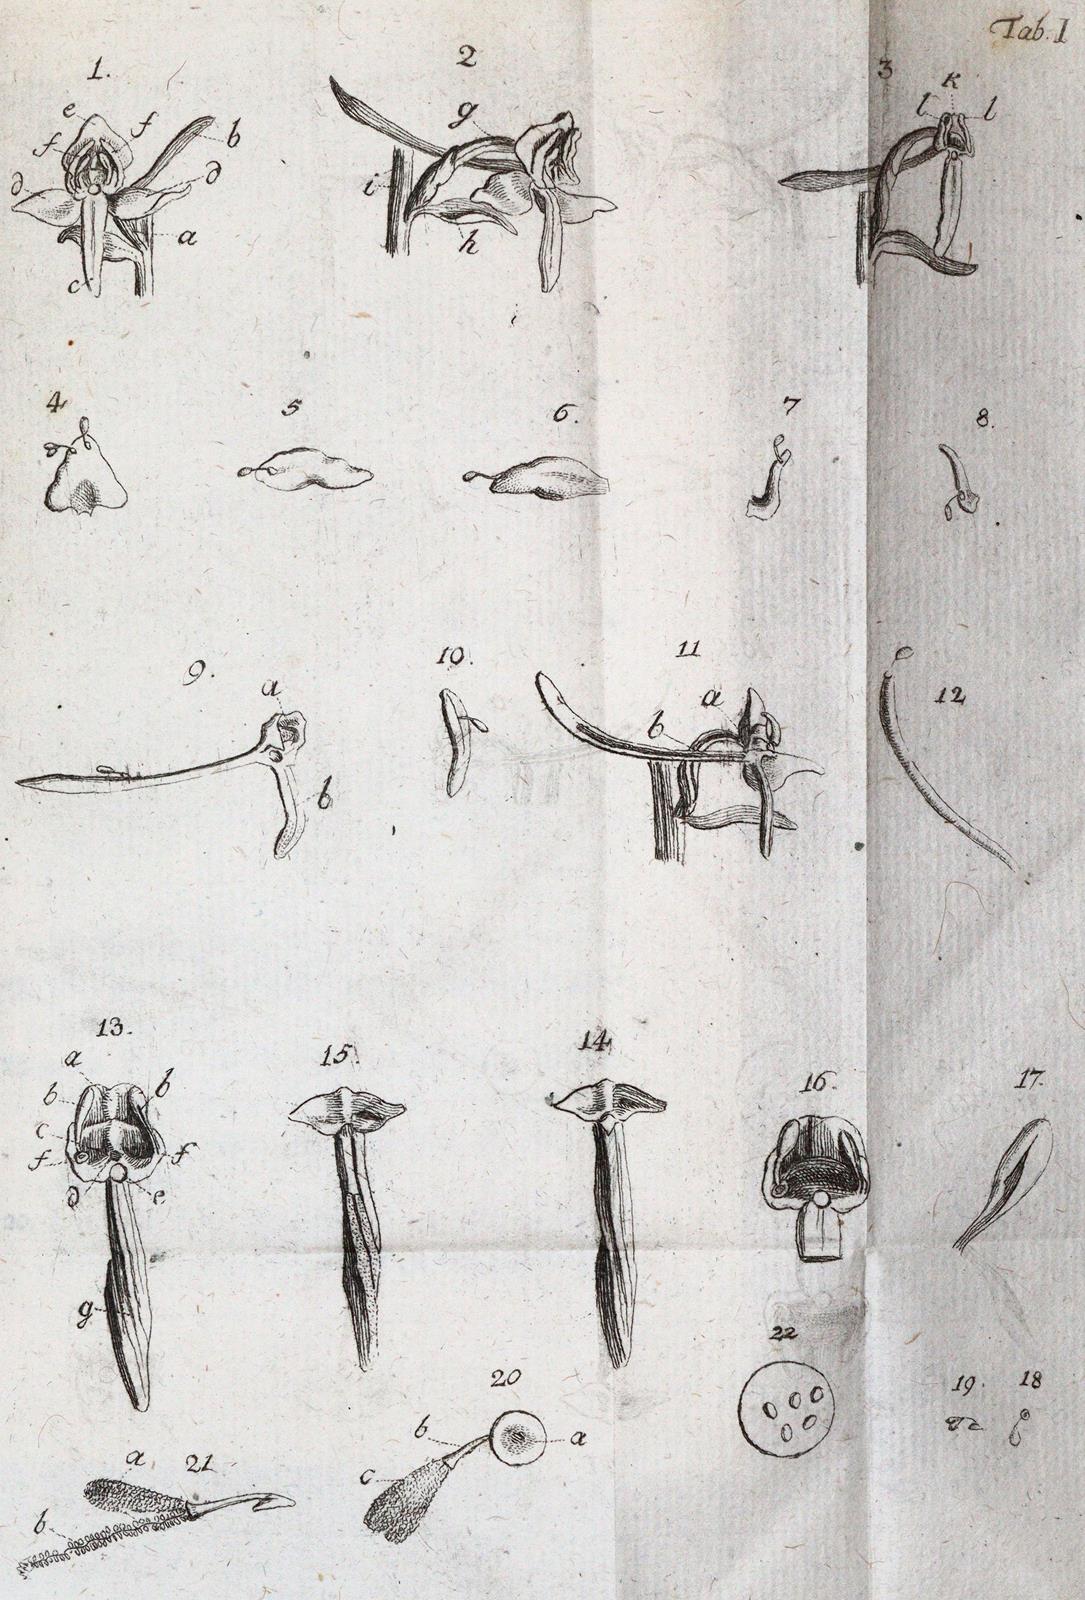 Tab. I
1. 2 3
e f f b d d a c
g i h
k l l
4 5 6. 7 8.
9. 10. 11 12
a b
a b
13. 15. 14 16. 17.
a b b c f f d e g
22
20 19. 18
b a c
a 21
b